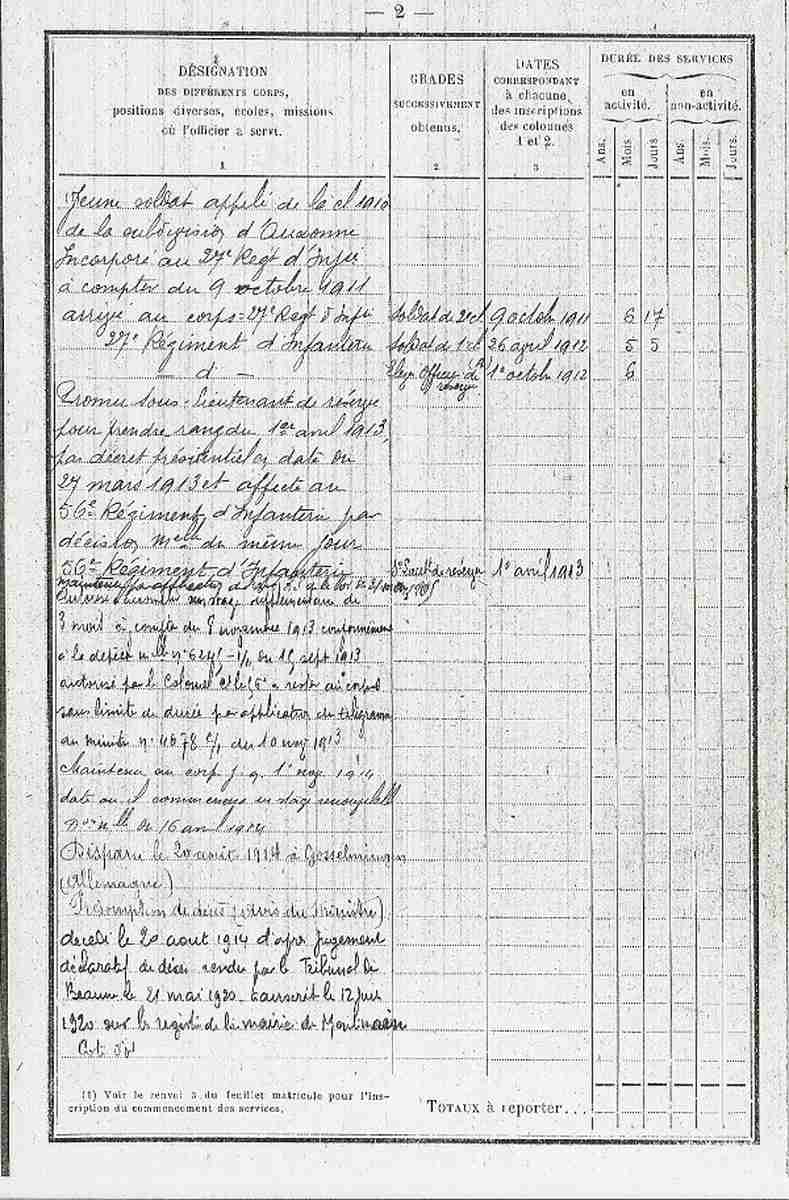 — 2 —
DÉSIGNATION
DES DIFFÉRENTS CORPS,
positions diverses, écoles, missions
où l'officier a servi.
1
GRADES
SUCCESSIVEMENT
obtenus.
2
DATES
CORRESPONDANT
à chacune
des inscriptions
des colonnes
1 et 2.
3
DURÉE DES SERVICES
en activité.
en non-activité.
Ans. Mois. Jours. Ans. Mois. Jours.
Jeune soldat appelé de la cl 1910
de la subdivision d'Auxonne
Incorporé au 27e Regt d'Infie
à compter du 9 octobre 1911
arrivé au corps 27e Regt d'Infie Soldat de 2e cl 9 octobre 1911 6 17
27e Régiment d'Infanterie Soldat de 1re cl 26 avril 1912 5 5
— d° — Elève Officier de réserve 1er octobre 1912 6
Promu Sous-Lieutenant de réserve
pour prendre rang du 1er avril 1913,
par décret présidentiel en date du
27 mars 1913 et affecté au
56e Régiment d'Infanterie par
décision mlle du même jour
56e Régiment d'Infanterie Ss Lieut. de réserve 1er avril 1913
supplémentaire de
3 mois à compter du 8 novembre 1913 conformément
à la dépêche mlle n° du 15 sept 1913
autorisé par le Colonel à rester au corps
sans limite de durée par application du télégramme
du ministre n° 4078 du 10 nov 1913
Maintenu au corps j. q. 1er nov 1914
date où il commencera un stage
du 16 avril 1914
Disparu le 20 août 1914 à Gosselmingen
(Allemagne)
Présomption de décès (avis du Ministre)
décédé le 20 aout 1914 d'après jugement
déclaratif de décès rendu par le Tribunal de
Beaune le 21 mai 1920 transcrit le 12 juin
1920 sur le registre de la mairie de
Cote d'Or
(1) Voir le renvoi 3 du feuillet matricule pour l'ins-
cription du commencement des services.
TOTAUX à reporter...